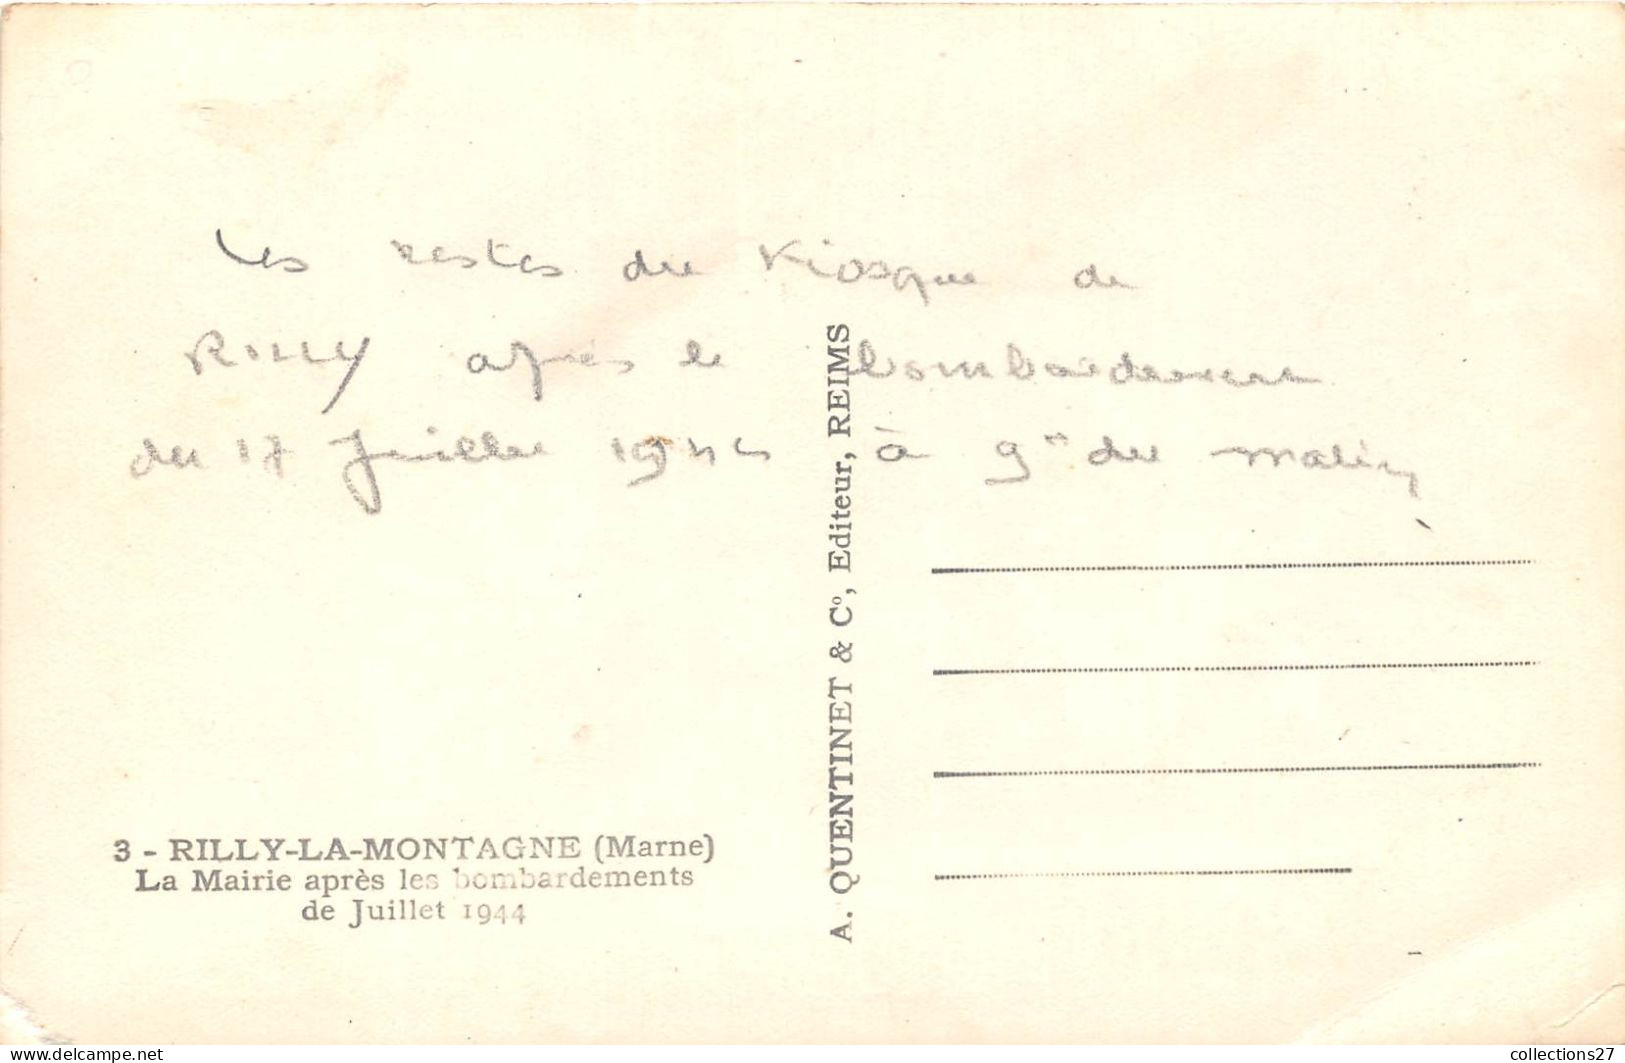 Les restes du Kiosque de
RILLY après le bombardement
du 17 Juillet 1944 à 9h du matin
A. QUENTINET & Cº, Editeur, REIMS
3 - RILLY-LA-MONTAGNE (Marne)
La Mairie après les bombardements
de Juillet 1944
collections27